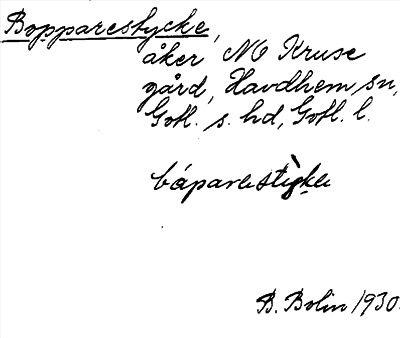 Bopparestycke,
åker NO Kruse
gård, Havdhem sn,
Gotl. s. hd, Gotl. l.
båparestỳke
B. Bolin 1930.